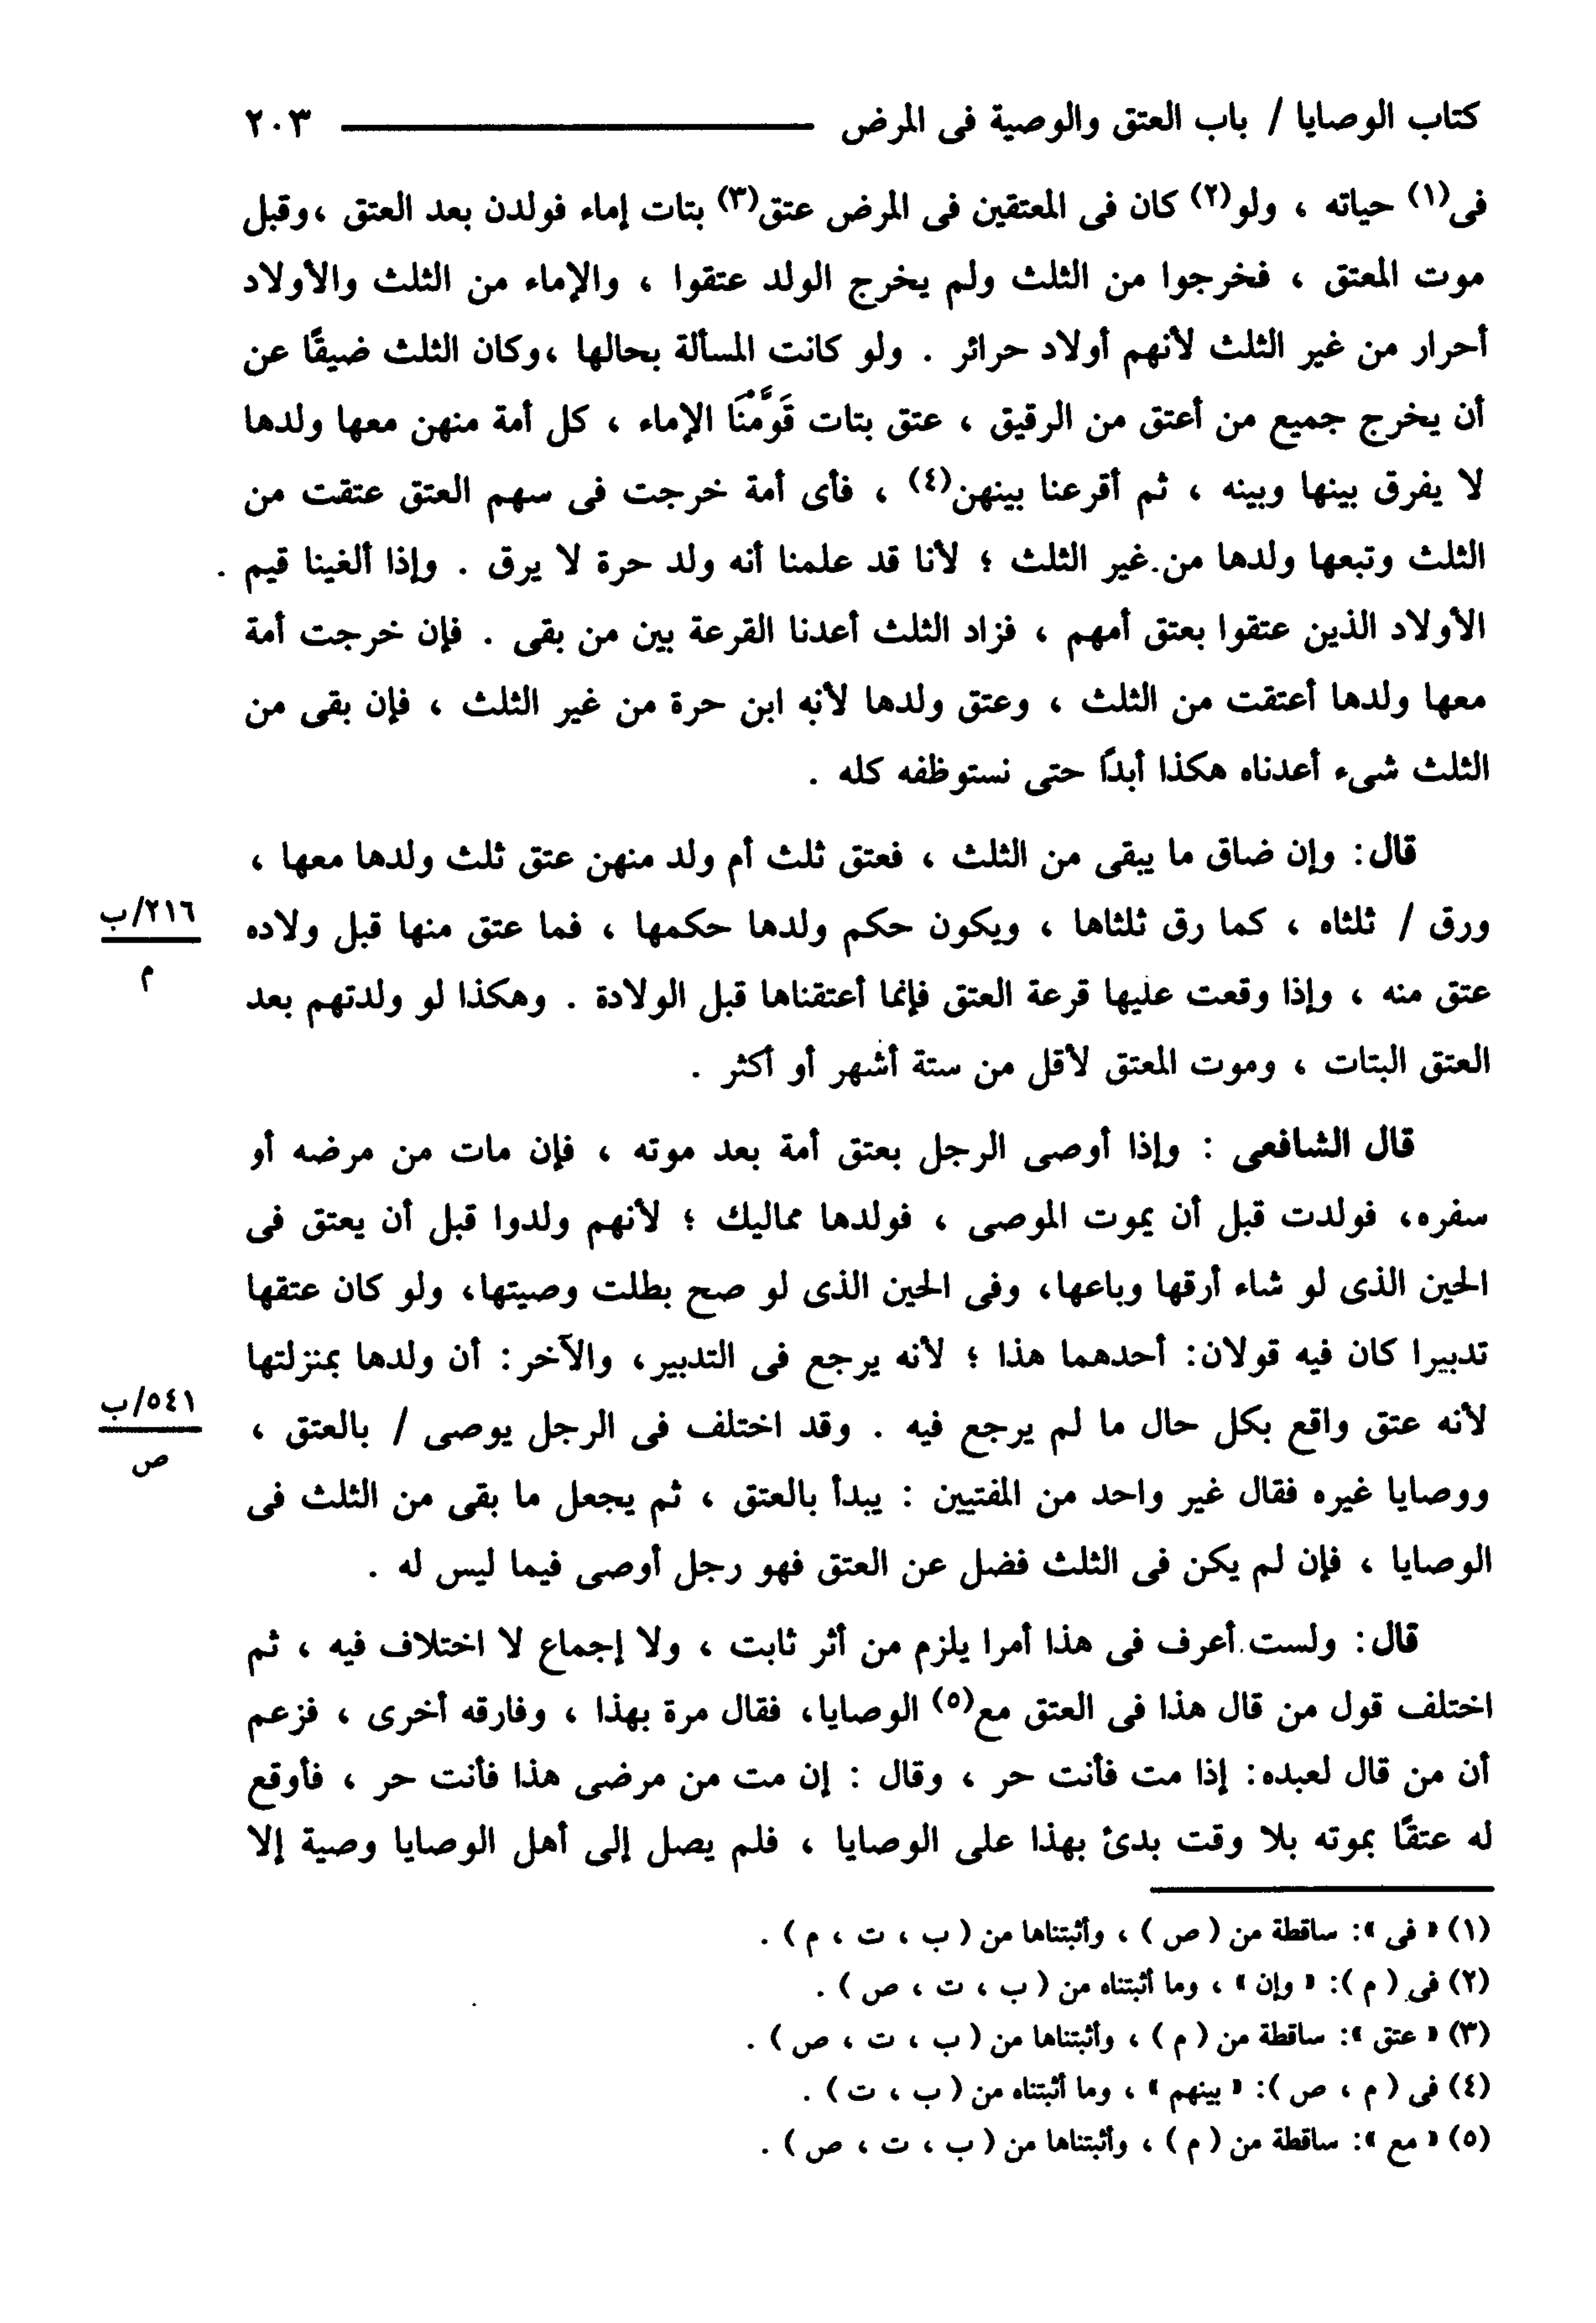 كتاب الوصايا / باب العتق والوصية فى المرض ـــــــــــ ٢٠٣
فى(١) حياته ، ولو(٢) كان فى المعتقين فى المرض عتق(٣) بتات إماء فولدن بعد العتق ،وقبل
موت المعتق ، فخرجوا من الثلث ولم يخرج الولد عتقوا ، والإماء من الثلث والأولاد
أحرار من غير الثلث لأنهم أولاد حرائر . ولو كانت المسألة بحالها ،وكان الثلث ضيقًا عن
أن يخرج جميع من أعتق من الرقيق ، عتق بتات قَوَّمْنَا الإماء ، كل أمة منهن معها ولدها
لا يفرق بينها وبينه ، ثم أقرعنا بينهن(٤) ، فأى أمة خرجت فى سهم العتق عتقت من
الثلث وتبعها ولدها من غير الثلث ؛ لأنا قد علمنا أنه ولد حرة لا يرق . وإذا ألغينا قيم .
الأولاد الذين عتقوا بعتق أمهم ، فزاد الثلث أعدنا القرعة بين من بقى . فإن خرجت أمة
معها ولدها أعتقت من الثلث ، وعتق ولدها لأنه ابن حرة من غير الثلث ، فإن بقى من
الثلث شىء أعدناه هكذا أبدًا حتى نستوظفه كله .
قال: وإن ضاق ما يبقى من الثلث ، فعتق ثلث أم ولد منهن عتق ثلث ولدها معها ،
ورق / ثلثاه ، كما رق ثلثاها ، ويكون حكم ولدها حكمها ، فما عتق منها قبل ولاده
٢١٦/ب
م
عتق منه ، وإذا وقعت عليها قرعة العتق فإنما أعتقناها قبل الولادة . وهكذا لو ولدتهم بعد
العتق البتات ، وموت المعتق لأقل من ستة أشهر أو أكثر .
قال الشافعى : وإذا أوصى الرجل بعتق أمة بعد موته ، فإن مات من مرضه أو
سفره، فولدت قبل أن يموت الموصى ، فولدها مماليك ؛ لأنهم ولدوا قبل أن يعتق فى
الحين الذى لو شاء أرقها وباعها، وفى الحين الذى لو صح بطلت وصيتها، ولو كان عتقها
تدبيرا كان فيه قولان: أحدهما هذا ؛ لأنه يرجع فى التدبير، والآخر: أن ولدها بمنزلتها
لأنه عتق واقع بكل حال ما لم يرجع فيه . وقد اختلف فى الرجل يوصى / بالعتق ،
٥٤١/ب
ص
ووصايا غيره فقال غير واحد من المفتيين : يبدأ بالعتق ، ثم يجعل ما بقى من الثلث فى
الوصايا ، فإن لم يكن فى الثلث فضل عن العتق فهو رجل أوصى فيما ليس له .
قال: ولست أعرف فى هذا أمرا يلزم من أثر ثابت ، ولا إجماع لا اختلاف فيه ، ثم
اختلف قول من قال هذا فى العتق مع(٥) الوصايا، فقال مرة بهذا ، وفارقه أخرى ، فزعم
أن من قال لعبده: إذا مت فأنت حر ، وقال : إن مت من مرضى هذا فأنت حر ، فأوقع
له عتقًا بموته بلا وقت بدئ بهذا على الوصايا ، فلم يصل إلى أهل الوصايا وصية إلا
(١) « فى »: ساقطة من ( ص ) ، وأثبتناها من ( ب ، ت ، م ) .
(٢) فى ( م ): « وإن » ، وما أثبتناه من ( ب ، ت ، ص ) .
(٣) « عتق »: ساقطة من ( م ) ، وأثبتناها من ( ب ، ت ، ص ) .
(٤) فى ( م ، ص ): « بينهم » ، وما أثبتناه من ( ب ، ت ) .
(٥) « مع »: ساقطة من ( م ) ، وأثبتناها من ( ب ، ت ، ص ) .